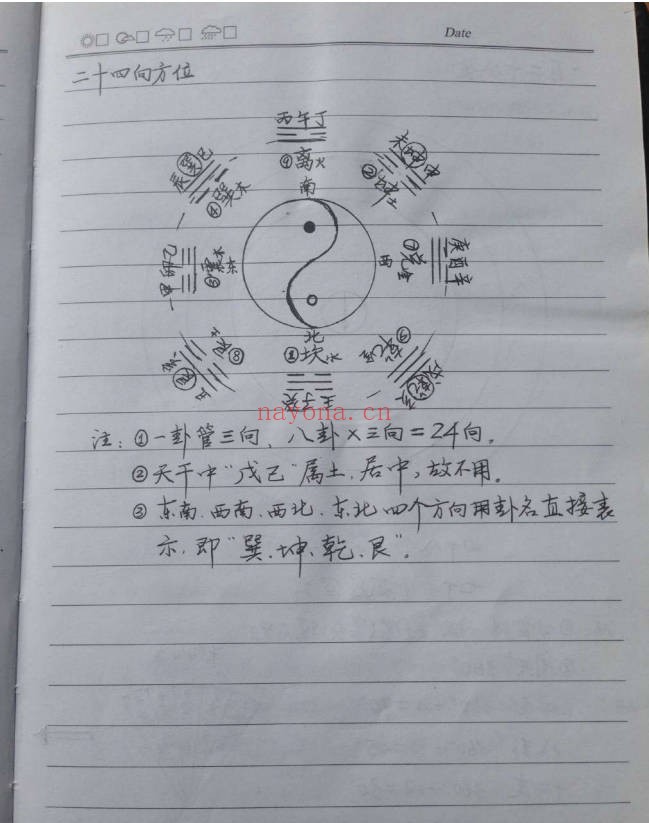 Date
二十四向方位
丙午丁
⑨离火
南
未坤申
②坤土
辰巽巳
④巽木
庚酉辛
⑦兑金
西
甲卯乙
③震木
东
⑧艮土
丑艮寅
北
①坎水
壬子癸
⑥乾金
戌乾亥
nayona.cn
注:①一卦管三向、八卦×三向=24向。
②天干中“戊己”属土、居中,故不用。
③东南、西南、西北、东北四个方向用卦名直接表
示,即“巽、坤、乾、艮”。